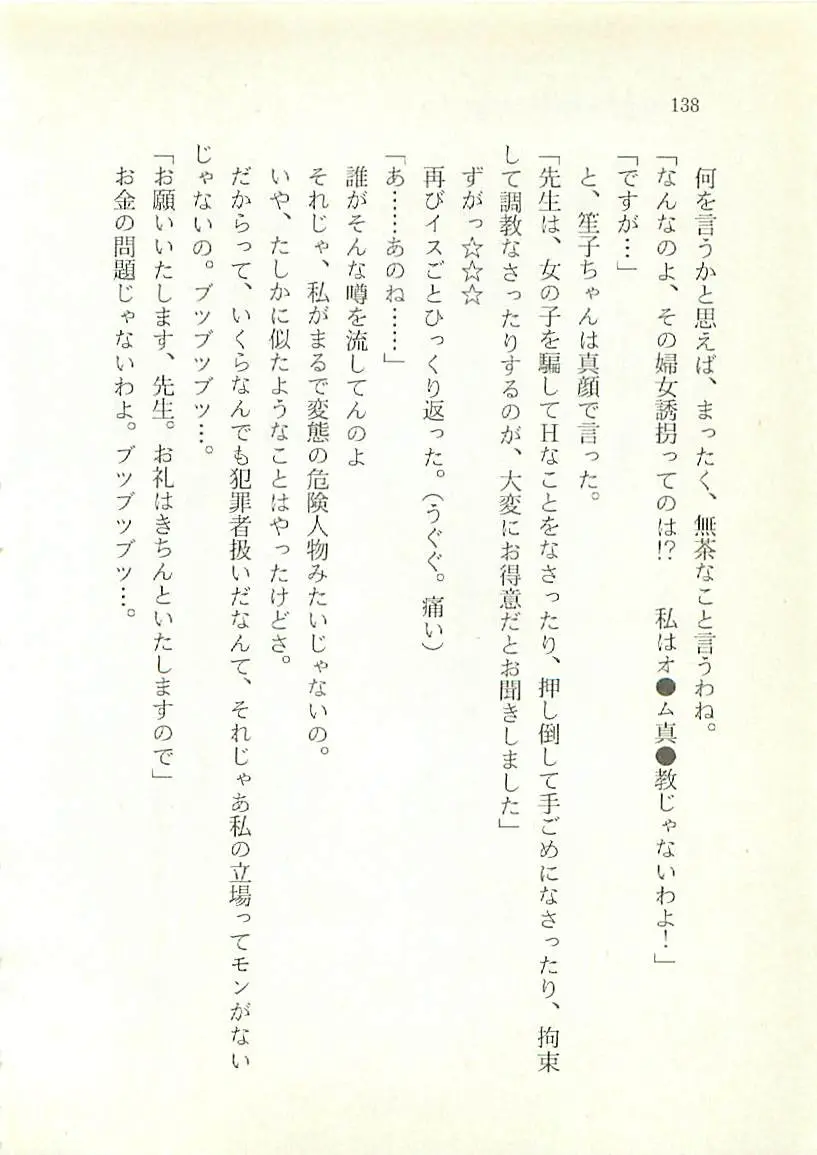 138
何を言うかと思えば、まったく、無茶なこと言うわね。
「なんなのよ、その婦女誘拐ってのは!?　私はオ●ム真●教じゃないわよ！」
「ですが…」
と、笙子ちゃんは真顔で言った。
「先生は、女の子を騙してHなことをなさったり、押し倒して手ごめになさったり、拘束
して調教なさったりするのが、大変にお得意だとお聞きしました」
ずがっ☆☆☆
再びイスごとひっくり返った。（うぐぐ。痛い）
「あ……あのね……」
誰がそんな噂を流してんのよ
それじゃ、私がまるで変態の危険人物みたいじゃないの。
いや、たしかに似たようなことはやったけどさ。
だからって、いくらなんでも犯罪者扱いだなんて、それじゃあ私の立場ってモンがない
じゃないの。ブツブツブツ…。
「お願いいたします、先生。お礼はきちんといたしますので」
お金の問題じゃないわよ。ブツブツブツ…。